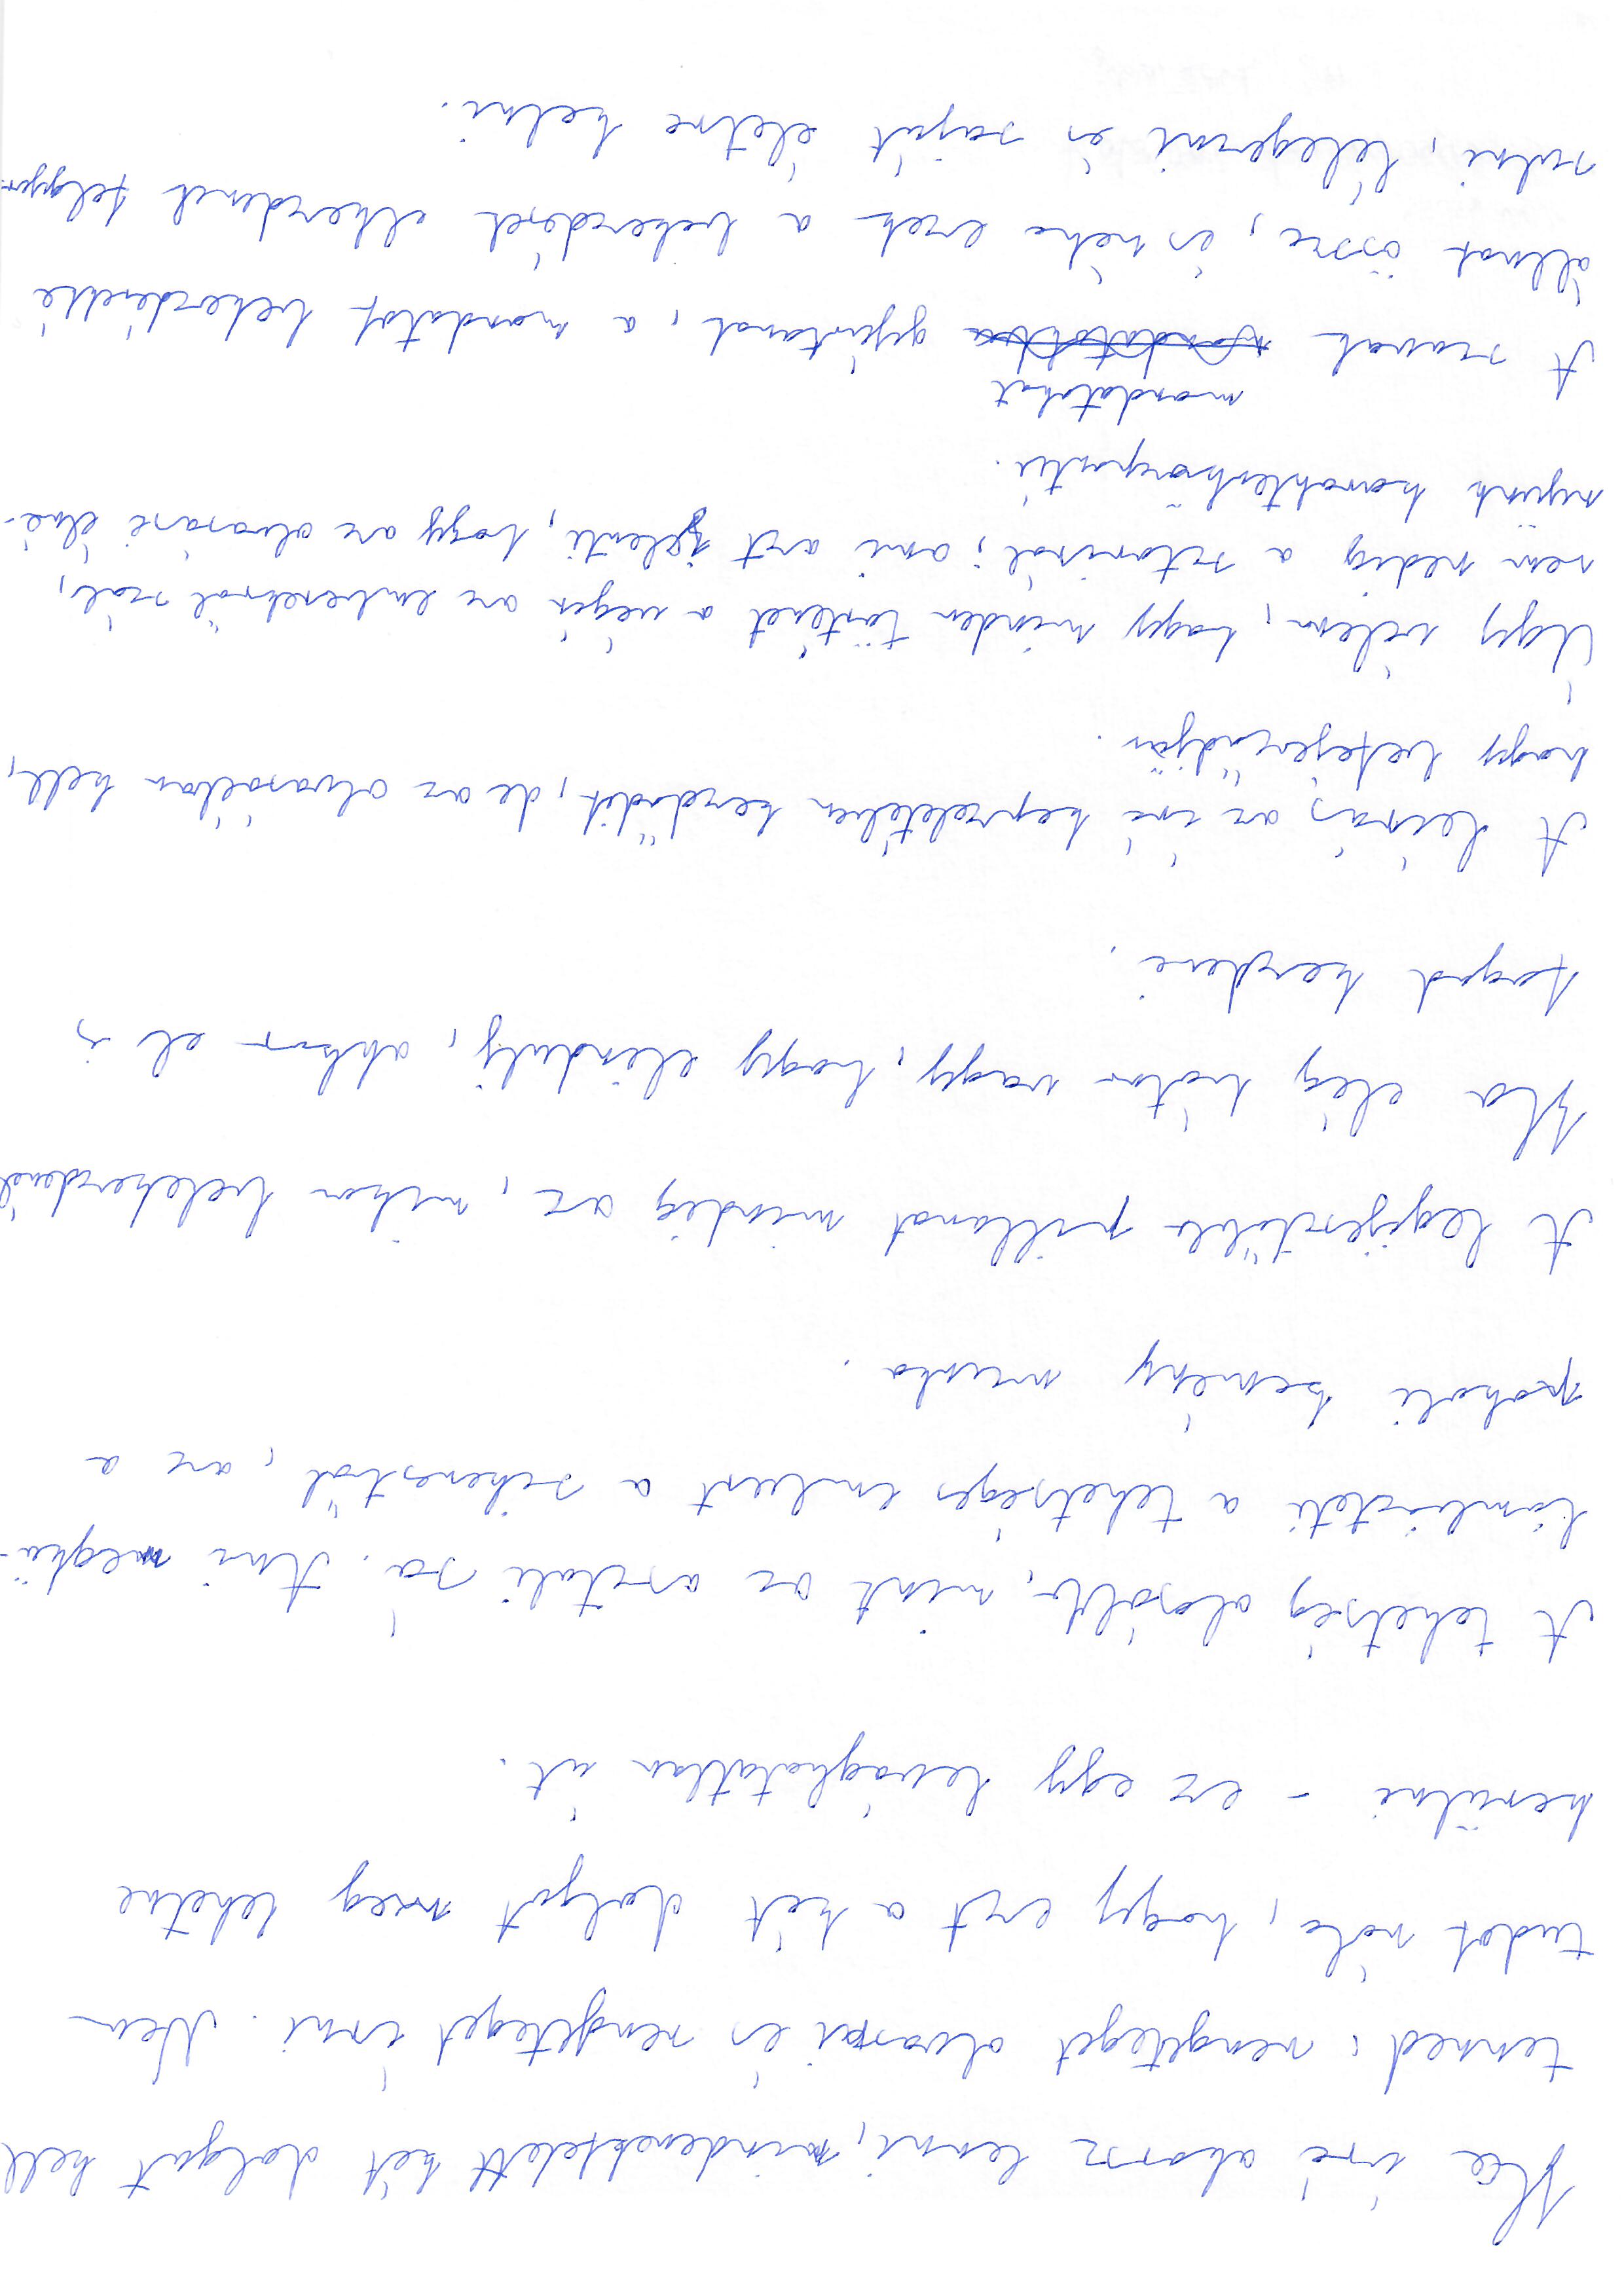 Ha író akarsz lenni, mindenekfelett két dolgot kell
tenned: rengeteget olvasni és rengeteget írni. Nem
tudok róla, hogy ezt a két dolgot meg lehetne
kerülni - ez egy levághatatlan út.
A tehetség olcsóbb, mint az asztali só. Ami megkü-
lömbözteti a tehetséges embert a sikerestől, az a
pokoli kemény munka.
A legijesztőbb pillanat mindig az, mikor belekezdenél
Ha elég bátor vagy, hogy elindulj, akkor el is
fogod kezdeni.
A leírás az író képzeletében kezdődik, de az olvasóéban kell,
hogy befejeződjön.
Úgy vélem, hogy minden történet a végén az emberekről szól,
nem pedig a sztoriról; ami azt jelenti, hogy az olvasási élmé-
nyünk karakterközpontú.
mondatokat
A szavak gyúrtanak, a mondatok bekezdésekké
állnak össze, és néha ezek a bekezdések elkezdenek felgyor-
sulni, lélegezni és saját életre kelni.